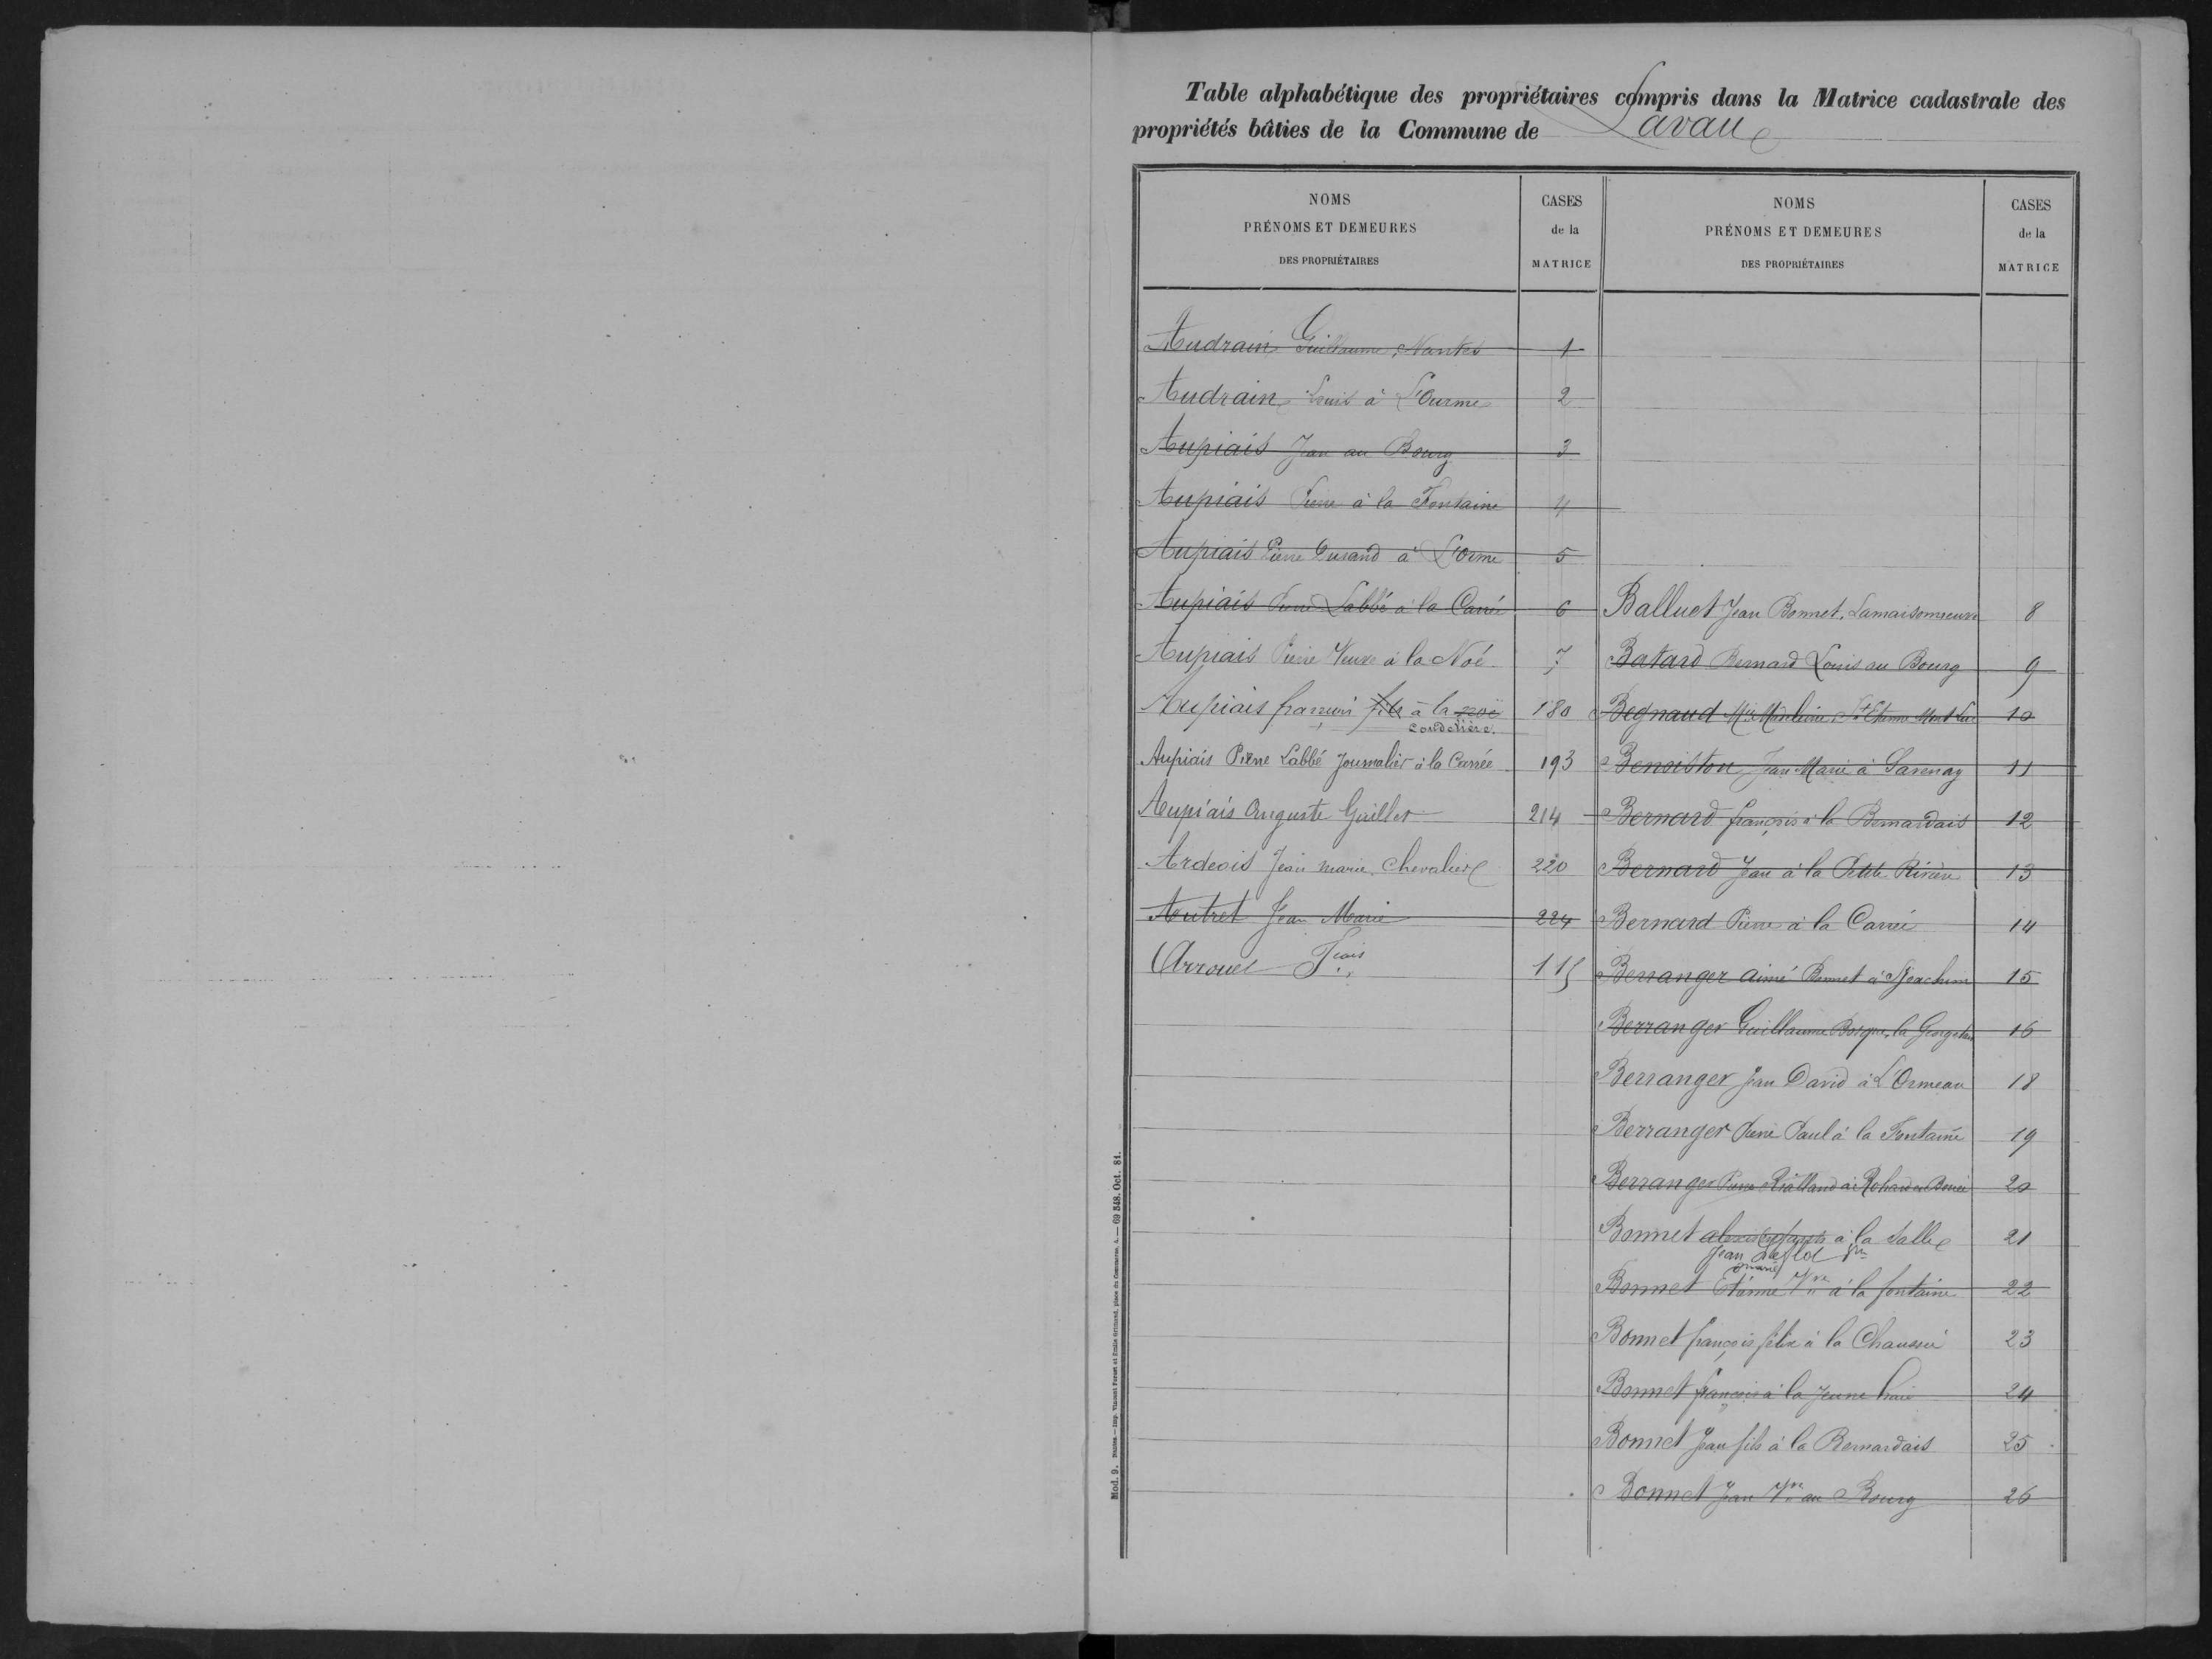 Table alphabétique des propriétaires compris dans la Matrice cadastrale des
propriétés bâties de la Commune de Lavau
NOMS
PRÉNOMS ET DEMEURES
DES PROPRIÉTAIRES
CASES
de la
MATRICE
Audrain Guillaume, Nantes 1
Audrain Louis à L'Ourme 2
Aupiais Jean au Bourg 3
Aupiais Pierre à la Fontaine 4
Aupiais Pierre Durand à L'Orme 5
Aupiais Pierre Labbé à la Carrée 6
Aupiais Pierre Veuve à la Noë 7
Aupiais françois fils à la noë 180
Coudelière.
Aupiais Pierre Labbé Journalier à la Carrée 193
Aupiais Auguste Guillet 214
Ardeois Jean marie Chevalier 220
Autret Jean Marie 224
Arrouet Fçois 115
NOMS
PRÉNOMS ET DEMEURES
DES PROPRIÉTAIRES
CASES
de la
MATRICE
Balluet Jean Bonnet, Lamaisonneuve 8
Batard Bernard Louis au Bourg 9
Begnaud Mie Madeleine, St Etienne Mont Luc 10
Benoiston Jean Marie à Savenay 11
Bernard françois à la Bernardais 12
Bernard Jean à la Petite Rivière 13
Bernard Pierre à la Carrée 14
Berranger aimé Bonnet à St Joachim 15
Berranger Guillaume la 16
Berranger Jean David à L'Ormeau 18
Berranger Pierre Paul à la Fontaine 19
Berranger Pierre Rialland à Rohars en Bouée 20
Bonnet alexis enfants à la Salle 21
Jean
marie
Bonnet Etienne Vve à la fontaine 22
Bonnet françois félix à la Chaussée 23
Bonnet françois à la Jeune haie 24
Bonnet Jean fils à la Bernardais 25
Bonnet Jean Vve au Bourg 26
Mod. 9. Nantes. — Imp. Vincent Forest et Emile Grimaud, place du Commerce, 4. — 69 348. Oct. 81.